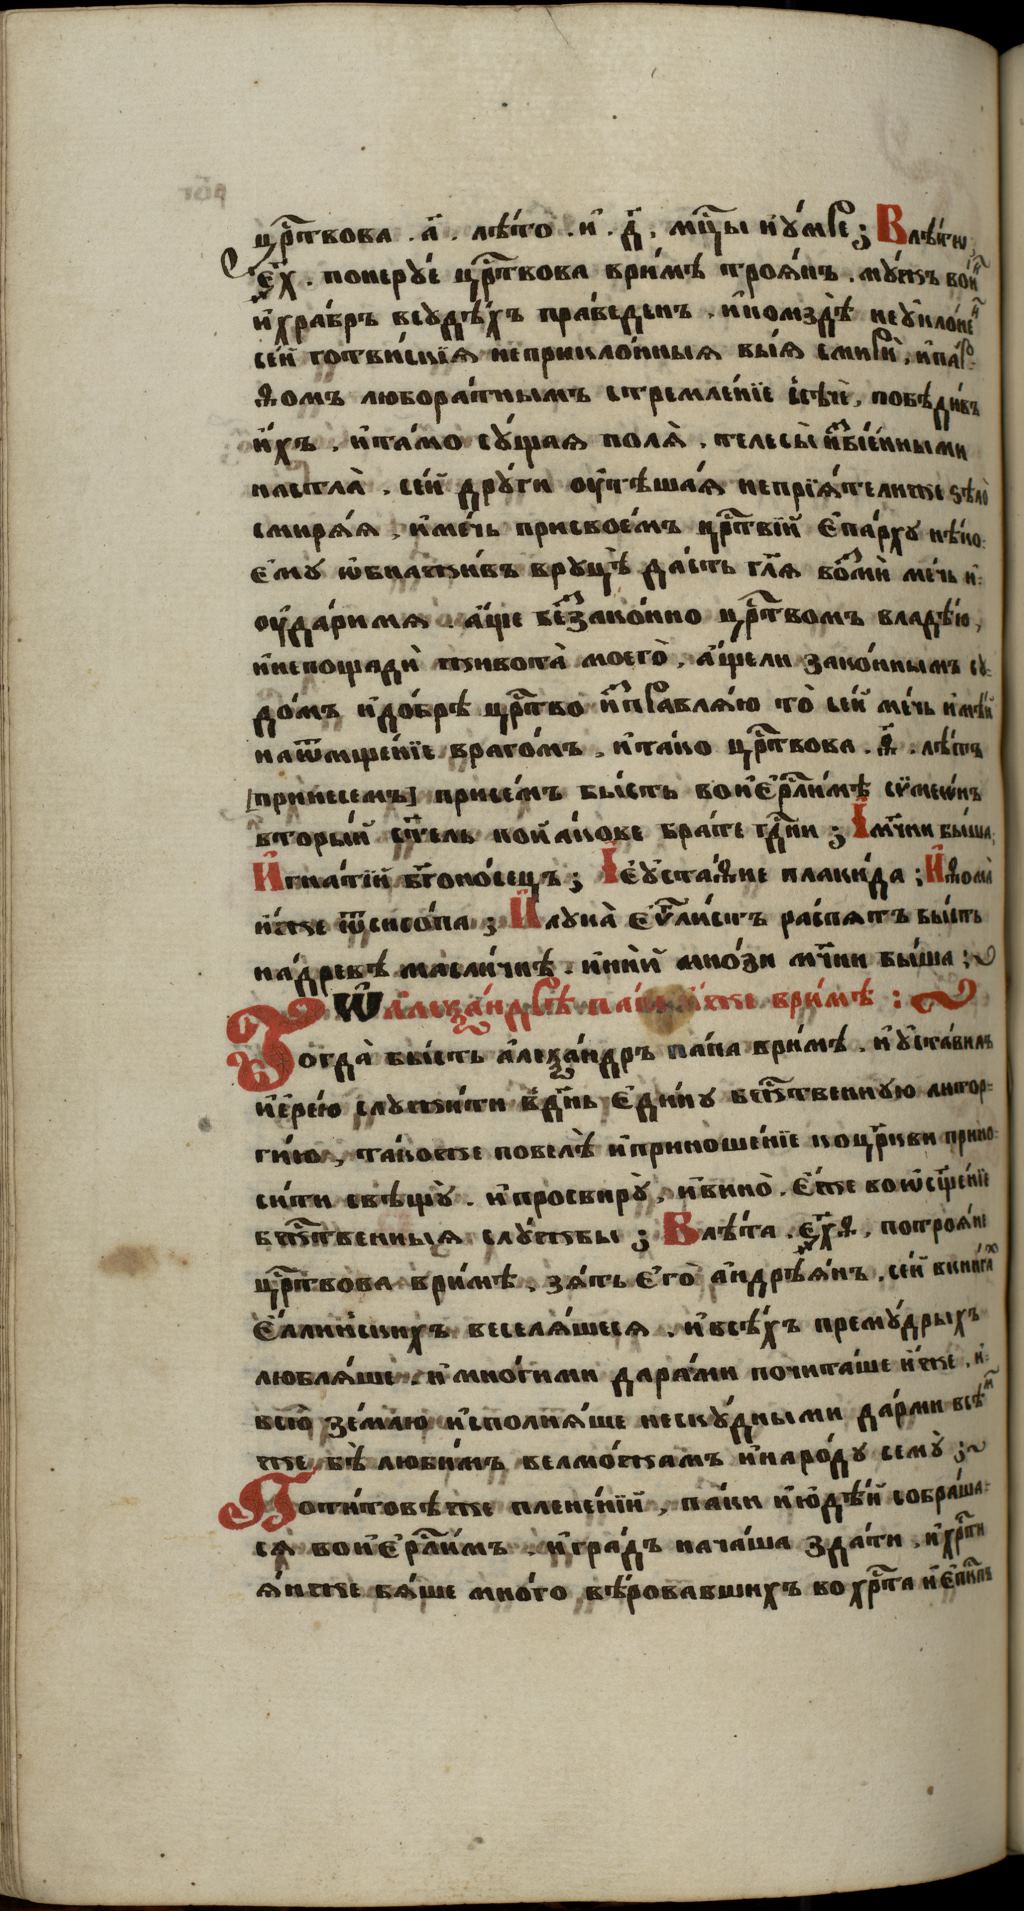 црⷭ҇твова . а҃ . лѣ́то . и҆ . д҃ . мцⷭ҇ы и҆ у́мре ; В лѣ́то
҂ех҃ . понеруе́ црⷭ҇твова в ри́мѣ троя́нъ . му́жъ вои́н
и҆ хра́бръ в суде́хъ пра́веденъ . и҆ ко мздѣ̀ неукло́не
сей готѳи́скія неприкло́нныя вы́я смирѝ , и҆ па́р
ѳомъ любора́тнымъ стремле́ніе ѿсѣчѐ , побѣди́въ
и҆́хъ , и҆ та́мо су́щая поля̀ . телесы̀ и҆збіе́нными
настла̀ . се́й дру́ги оу҆тѣша́я непрія́тели же ѕѣло̀
смиря́я , и҆ ме́чь при свое́мъ црⷭ҇твіи е҆па́рху нѣ́ко
ему ѡ҆бнажи́въ в руцѣ̀ да́стъ гл҃я возмѝ ме́чь и҆
оу҆да́ри мя . а҆́ще беззако́нно црⷭ҇твомъ владѣ́ю ,
и҆ не пощадѝ живота̀ моего̀ , а҆́ще ли зако́ннымъ су
до́мъ и҆ до́брѣ црⷭ҇тво и҆справля́ю то̀ се́й ме́чь и҆мѣ́й
на ѿмще́ніе враго́мъ . и҆ та́ко црⷭ҇твова . ѳ҃і . лѣ́тъ
[при не́семъ] при се́мъ бы́сть во и҆ерⷭ҇ли́мѣ сѷмео́нъ
вторы́й ст҃ль по и҆а́кове бра́те гдⷭ҇ни ; І мчн҃ки бы́ша
И҆гна́тій бг҃оно́сецъ ; І еѵста́ѳие плаки́да ; И҆ ѳома̀
и҆́же ѿ си́сопа ; И҆ лука̀ еѵⷢ҇ли́стъ распя́тъ бы́сть
на дре́вѣ масли́чнѣ . и҆ и҆ні́и мно́зи мчн҃ки бы́ша ;
Ѡ а҆леѯа́ндрѣ па́пѣ и҆́же в ри́мѣ :
Тогда̀ бы́сть а҆леѯа́ндръ па́па в ри́мѣ . и҆ уста́вилъ
и҆ере́ю служи́ти в дн҃ь еди́ну бжⷭ҇твенную литор
ги́ю , та́кожде повелѣ̀ и҆ приноше́ніе ко цр҃кви прино
си́ти свѣщу̀ . и҆ просвиру̀ , и҆ вино̀ . е҆́же во ѡ҆сщ҃е́ніе
бжⷭ҇твенныя слу́жбы ; В лѣ́та . ҂ех҃ѳі , по трои́не
црⷭ҇твова в ри́мѣ , зя́ть его̀ а҆ндрѣя́нъ . се́й в кни́гах
е҆́ллинскихъ веселя́шеся . и҆ всѣ́хъ прему́дрыхъ
любля́ше . и҆ мно́гими дара́ми почита́ше и҆́же , и҆
всю̀ зе́млю и҆сполня́ше неску́дными да́рми всѣ́м
же бѣ̀ люби́мъ велмо́жамъ и҆ наро́ду сему̀ ;
По ти́товѣ же плене́ніи , па́ки и҆юде́и собра́ша
ся̀ во и҆ерⷭ҇ли́мъ . и҆ гра́дъ нача́ша зда́ти . и҆ хрⷭ҇ти
я́нже бя́ше мно́го вѣ́ровавшихъ во хрⷭ҇та̀ и҆ е҆пⷭ҇кпъ